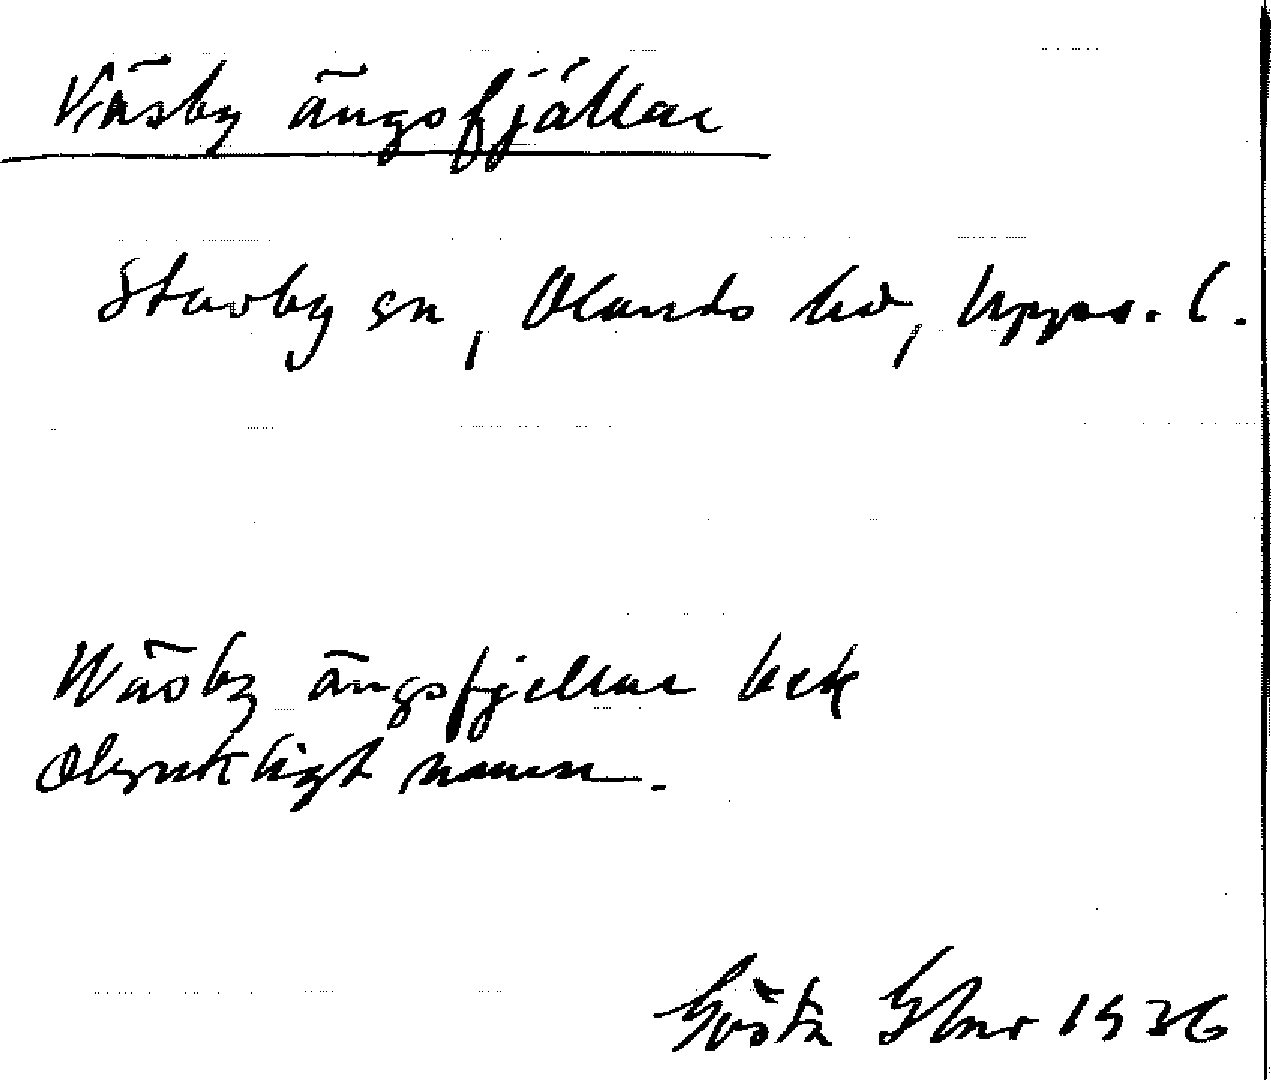 Väsby ängsfjällar
Stavby sn, Olands hd, Upps. l.
Wäsby ängsfjellar kek
Olyckligt namn.
Gösta 1936